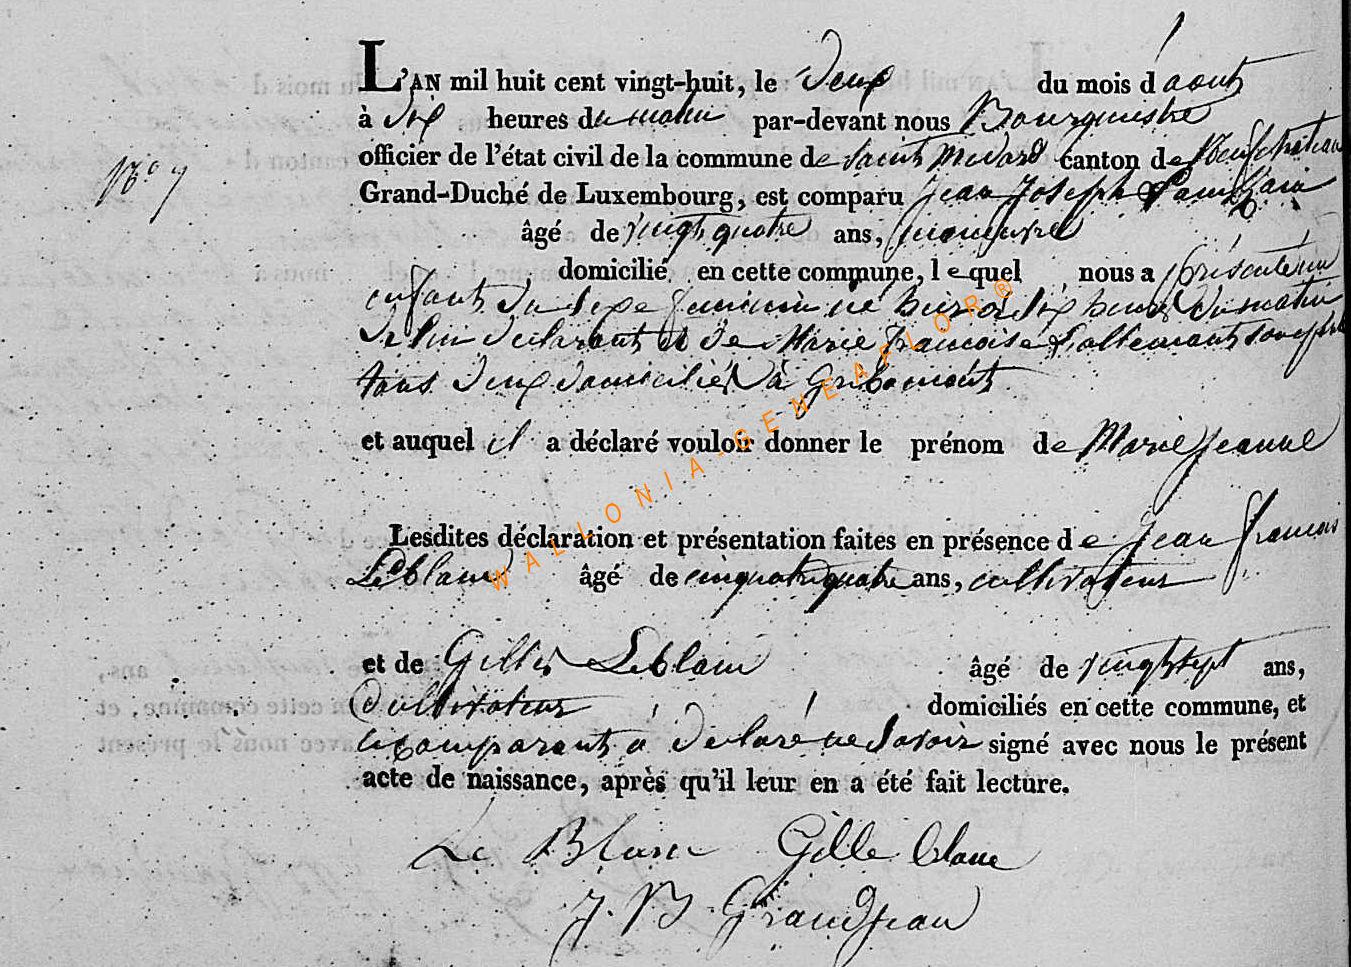 L'AN mil huit cent vingt-huit, le Deux du mois d'aout
à dix heures du matin par-devant nous Bourguestre
officier de l'état civil de la commune de Saint Medard canton de Neufchateau
No 7
Grand-Duché de Luxembourg, est comparu Jean Joseph
âgé de vingt quatre ans, manuvre
domicilié en cette commune, lequel nous a présenté un
enfant du sexe feminin né hier à dix heures du matin
de lui declarant et de Marie francoise Lallemant son epouse
tous deux domiciliés à Gribomont
et auquel il a déclaré vouloir donner le prénom de Marie Jeanne
Lesdites déclaration et présentation faites en présence de Jean francois
Leblanc âgé de cinquante quatre ans, cultivateur
et de Gilles Leblanc âgé de vingt sept ans,
Cultivateur domiciliés en cette commune, et
le comparant à declaré ne Savoir signé avec nous le présent
acte de naissance, après qu'il leur en a été fait lecture.
Le Blanc Gille leblanc
J. B Grandjean
WALLONIA-GENEAFLOR®